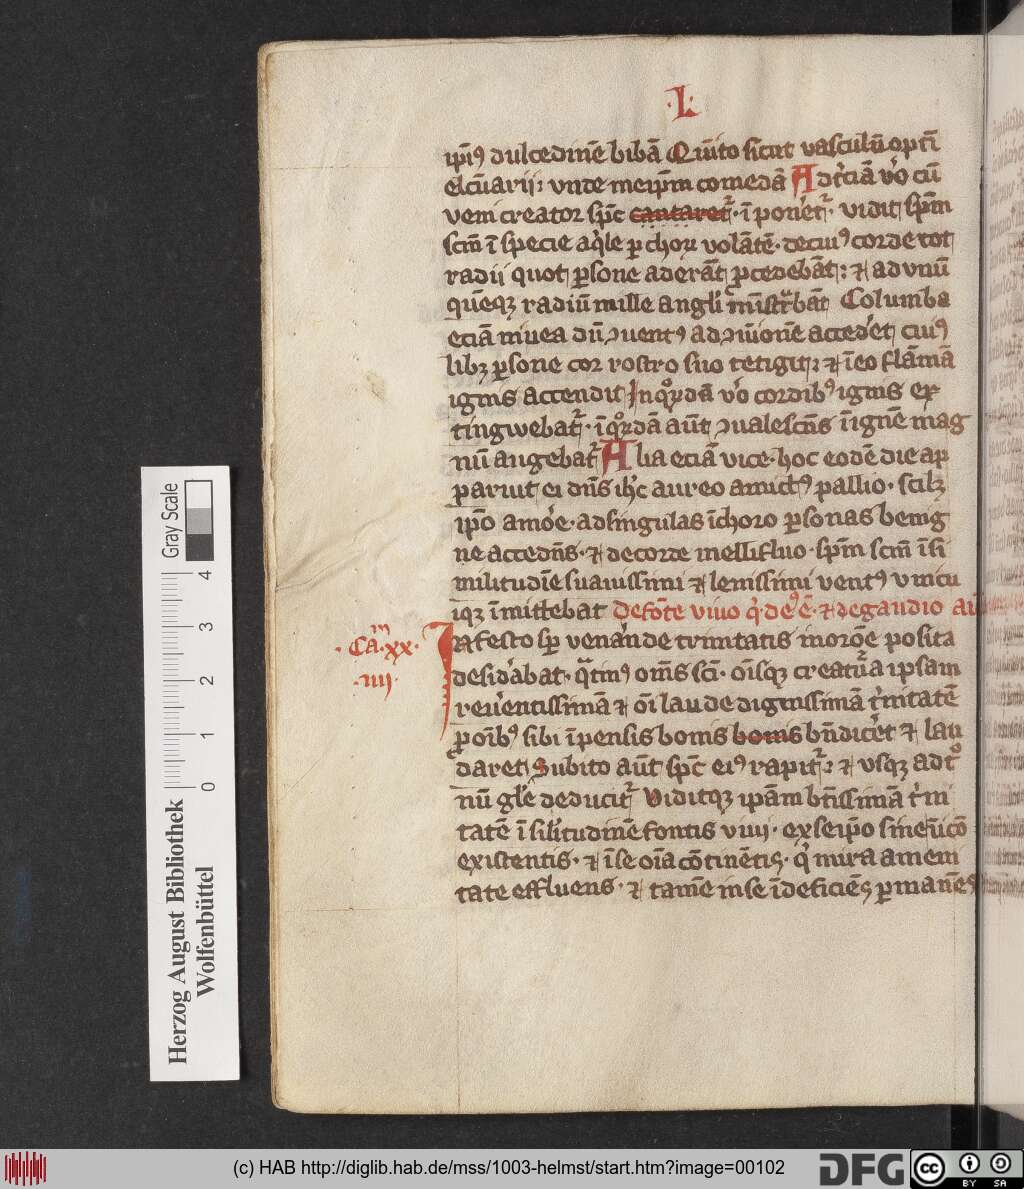 ·L·
ip̄iꝰ dulcedinē bibā Quīto sīcut vasculū optī
elcūarii: vnde meip̄m comedā Ad tͥciā v̾o cū
veni creator sp̄c cantaret᷑· ī ponēt᷑· vidit sp̄m
sc̄m ī specie aq̾le ꝑ choꝝ volātē· de cuiꝰ corde tot
radii quot ꝑsone aderāt ꝓcedebāt: ⁊ ad vnū
quēqꝫ radiū mille angl̾i mīst᷑bāt Columba
eciā niuea dū ꝯuentꝰ ad ꝯīuionē acced̾et cuiꝰ
libꝫ ꝑsone cor rostro suo tetigit: ⁊ ī eo flāmā
ignis accendit In qͦꝝdā v̾o cordibꝰ ignis ex
tingwebat᷑· ī qͦꝝdā aūt ꝯualescēns ī ignē mag
nū augebat᷑ Alia eciā vice· hoc eodē die ap
paruit ei dn̄s ih̾c aureo amictꝰ pallio· scilꝫ
ip̄o amo̾e· ad singulas ī choro ꝑsonas benig
ne accedn̄s· ⁊ de corde mellifluo· sp̄m sc̄m ī si
militudīe suauissimi ⁊ lenissimi ventꝰ vnicu
iqꝫ īmittebat De fōte viuo qͥ deꝰ ē· ⁊ de gaudio
·Cāᵐ·xx·
·iiii·
In festo sp̄ venānde trinitatis in orōe posita
desid̾abat· qͣtinꝰ om̄s sc̄i· oīsqꝫ creatūa ipsam
reu̾entissimā ⁊ oī laude dignissimā tͥnitatē
ꝓ oībꝰ sibi īpensis bonis bonis bn̄dic̾et ⁊ lau
daret Subito aūt sp̄c eiꝰ rapit᷑: ⁊ vsqꝫ ad tͦ
nū gl̾e deducit᷑ Viditqꝫ ip̄am bt̄issimā tͥni
tatē ī sil̾itudinē fontis viui· ex seip̄o sine īicō
existentis· ⁊ ī se oīa cōtinētis· qͥ mira ameni
tate effluens· ⁊ tamē in se īdeficiēs ꝑmanēs
Gray Scale
0 1 2 3 4
Herzog August Bibliothek
Wolfenbüttel
(c) HAB http://diglib.hab.de/mss/1003-helmst/start.htm?image=00102
DFG
cc
BY SA